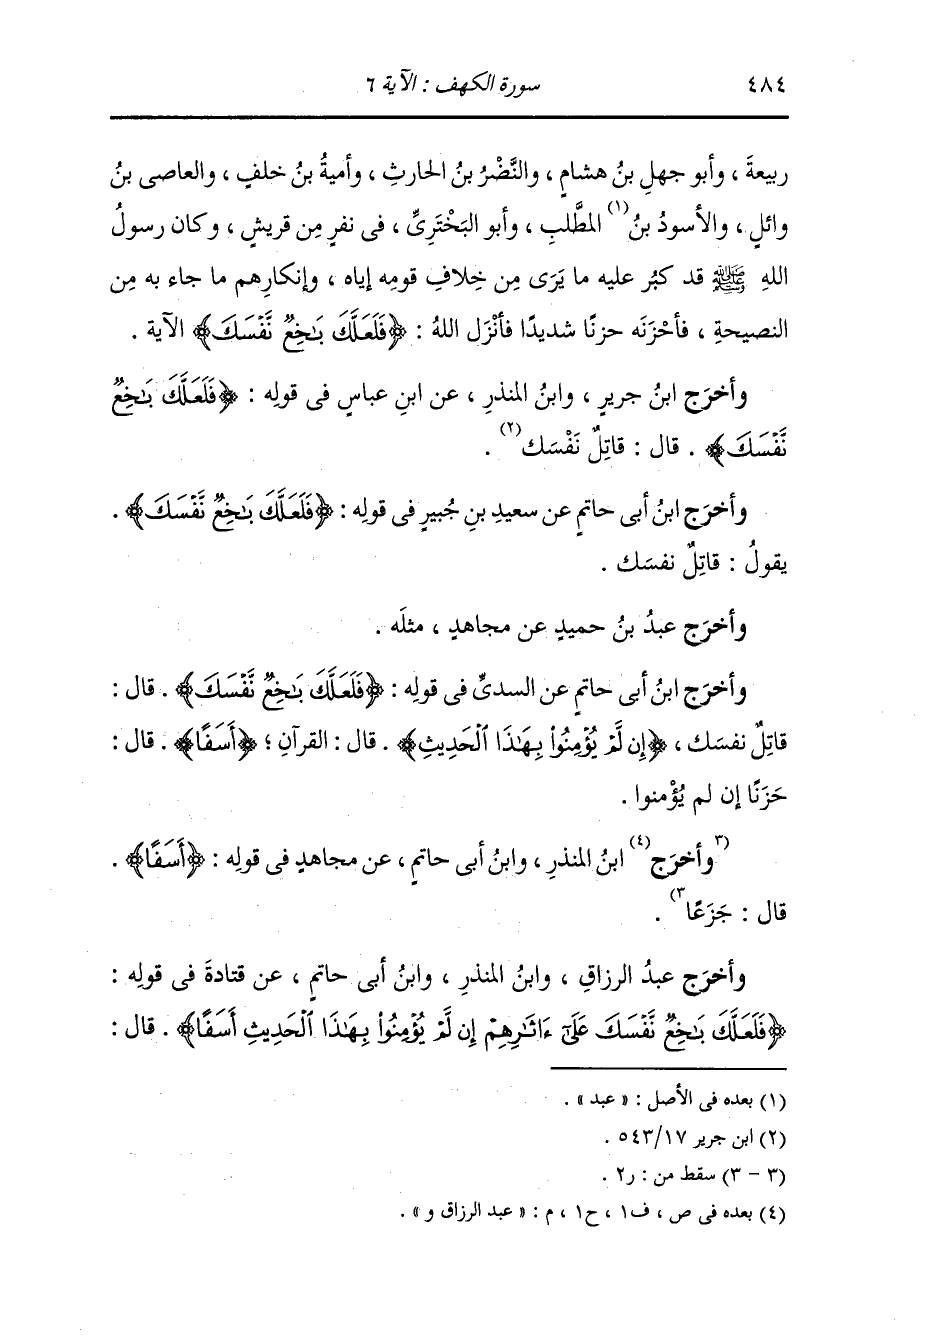 ٤٨٤ سورة الكهف : الآية ٦
ربيعةَ ، وأبو جهلِ بنُ هشامٍ ، والنَّضْرُ بنُ الحارثِ ، وأميةُ بنُ خلفٍ ، والعاصى بنُ
وائلٍ ، والأسودُ بنُ(١) المطَّلبِ ، وأبو البَخْتَرِىِّ ، فى نفرٍ مِن قريشٍ ، وكان رسولُ
اللهِ ﷺ قد كبُر عليه ما يَرَى مِن خِلافِ قومِه إياه ، وإنكارِهم ما جاء به مِن
النصيحةِ ، فأحْزَنَه حزنًا شديدًا فأنْزَل اللهُ : ﴿فَلَعَلَّكَ بَـٰخِعٌ نَّفْسَكَ﴾ الآية .
وأخرَج ابنُ جريرٍ ، وابنُ المنذرِ ، عن ابنِ عباسٍ فى قولِه : ﴿فَلَعَلَّكَ بَـٰخِعٌ
نَّفْسَكَ﴾ . قال : قاتِلٌ نَفْسَك(٢) .
وأخرَج ابنُ أبى حاتمٍ عن سعيدِ بنِ جُبيرٍ فى قولِه : ﴿فَلَعَلَّكَ بَـٰخِعٌ نَّفْسَكَ﴾ .
يقولُ : قاتِلٌ نفسَك .
وأخرَج عبدُ بنُ حميدٍ عن مجاهدٍ ، مثلَه .
وأخرَج ابنُ أبى حاتمٍ عن السدىِّ فى قولِه : ﴿فَلَعَلَّكَ بَـٰخِعٌ نَّفْسَكَ﴾ . قال :
قاتِلٌ نفسَك ، ﴿إِن لَّمْ يُؤْمِنُوا۟ بِهَـٰذَا ٱلْحَدِيثِ﴾ . قال : القرآنِ ؛ ﴿أَسَفًا﴾ . قال :
حَزَنًا إن لم يُؤْمنوا .
(٣وأخرَج(٤) ابنُ المنذرِ ، وابنُ أبى حاتمٍ ، عن مجاهدٍ فى قولِه : ﴿أَسَفًا﴾ .
قال : جَزَعًا٣) .
وأخرَج عبدُ الرزاقِ ، وابنُ المنذرِ ، وابنُ أبى حاتمٍ ، عن قتادةَ فى قولِه :
﴿فَلَعَلَّكَ بَـٰخِعٌ نَّفْسَكَ عَلَىٰٓ ءَاثَـٰرِهِمْ إِن لَّمْ يُؤْمِنُوا۟ بِهَـٰذَا ٱلْحَدِيثِ أَسَفًا﴾ . قال :
(١) بعده فى الأصل : « عبد » .
(٢) ابن جرير ٥٤٣/١٧ .
(٣ - ٣) سقط من : ر٢ .
(٤) بعده فى ص ، ف١ ، ح١ ، م : « عبد الرزاق و » .